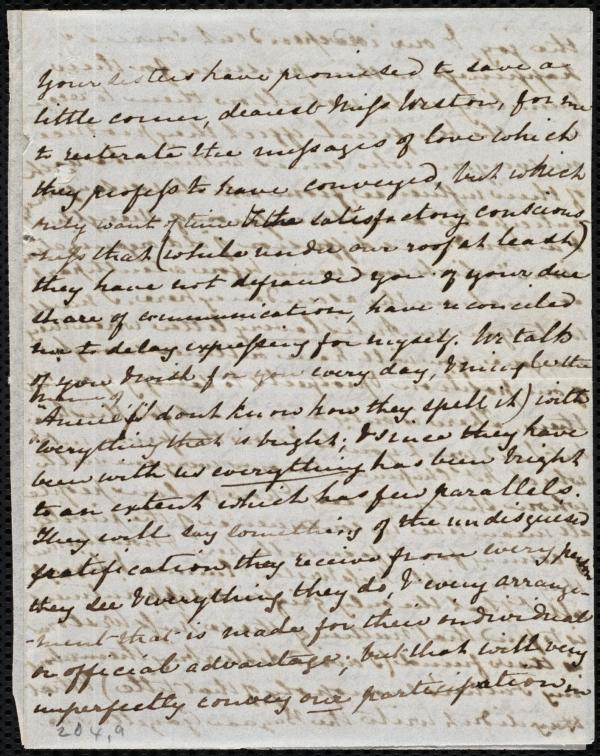 Your sisters have promised to save a
little corner, dearest Miss Weston, for me
to reiterate the messages of love which
they profess to have conveyed, but which
only want of time & the satisfactory conscious
-ness that (while under our roof at least)
they have not defrauded you of your due
share of communication, have reconciled
me to delay expressing for myself. We talk
of you & wish for you every day, & mingle the
name of
"Annie" (I dont know how they spell it) with
everything that is bright; & since they have
been with us everything has been bright
to an extent which has few parallels.
They will say something of the undisguised
gratification they receive from every person
they see & everything they do, & every arrange-
-ment that is made for their individual
or official advantage; but that will very
imperfectly convey our participation in
204,9